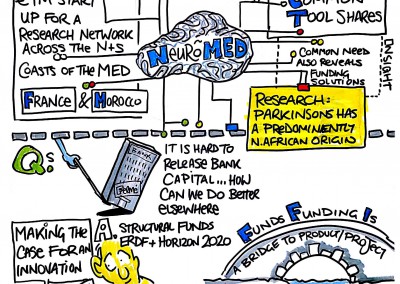 UP FOR A
RESEARCH NETWORK
ACROSS THE N+S
COASTS OF THE MED
FRANCE & MOROCCO
NEUROMED
COMMON
TOOL SHARES
COMMON NEED
ALSO REVEALS
FUNDING
SOLUTIONS
INSIGHT
RESEARCH:
PARKINSONS HAS
A PREDOMINENTLY
N.AFRICAN ORIGIN
Qs:
IT IS HARD TO
RELEASE BANK
CAPITAL... HOW
CAN WE DO BETTER
ELSEWHERE
MAKING THE
CASE FOR AN
INNOVATION
STRUCTURAL FUNDS
ERDF + HORIZON 2020
FUNDS FUNDING IS
A BRIDGE TO PRODUCT/PROJECT